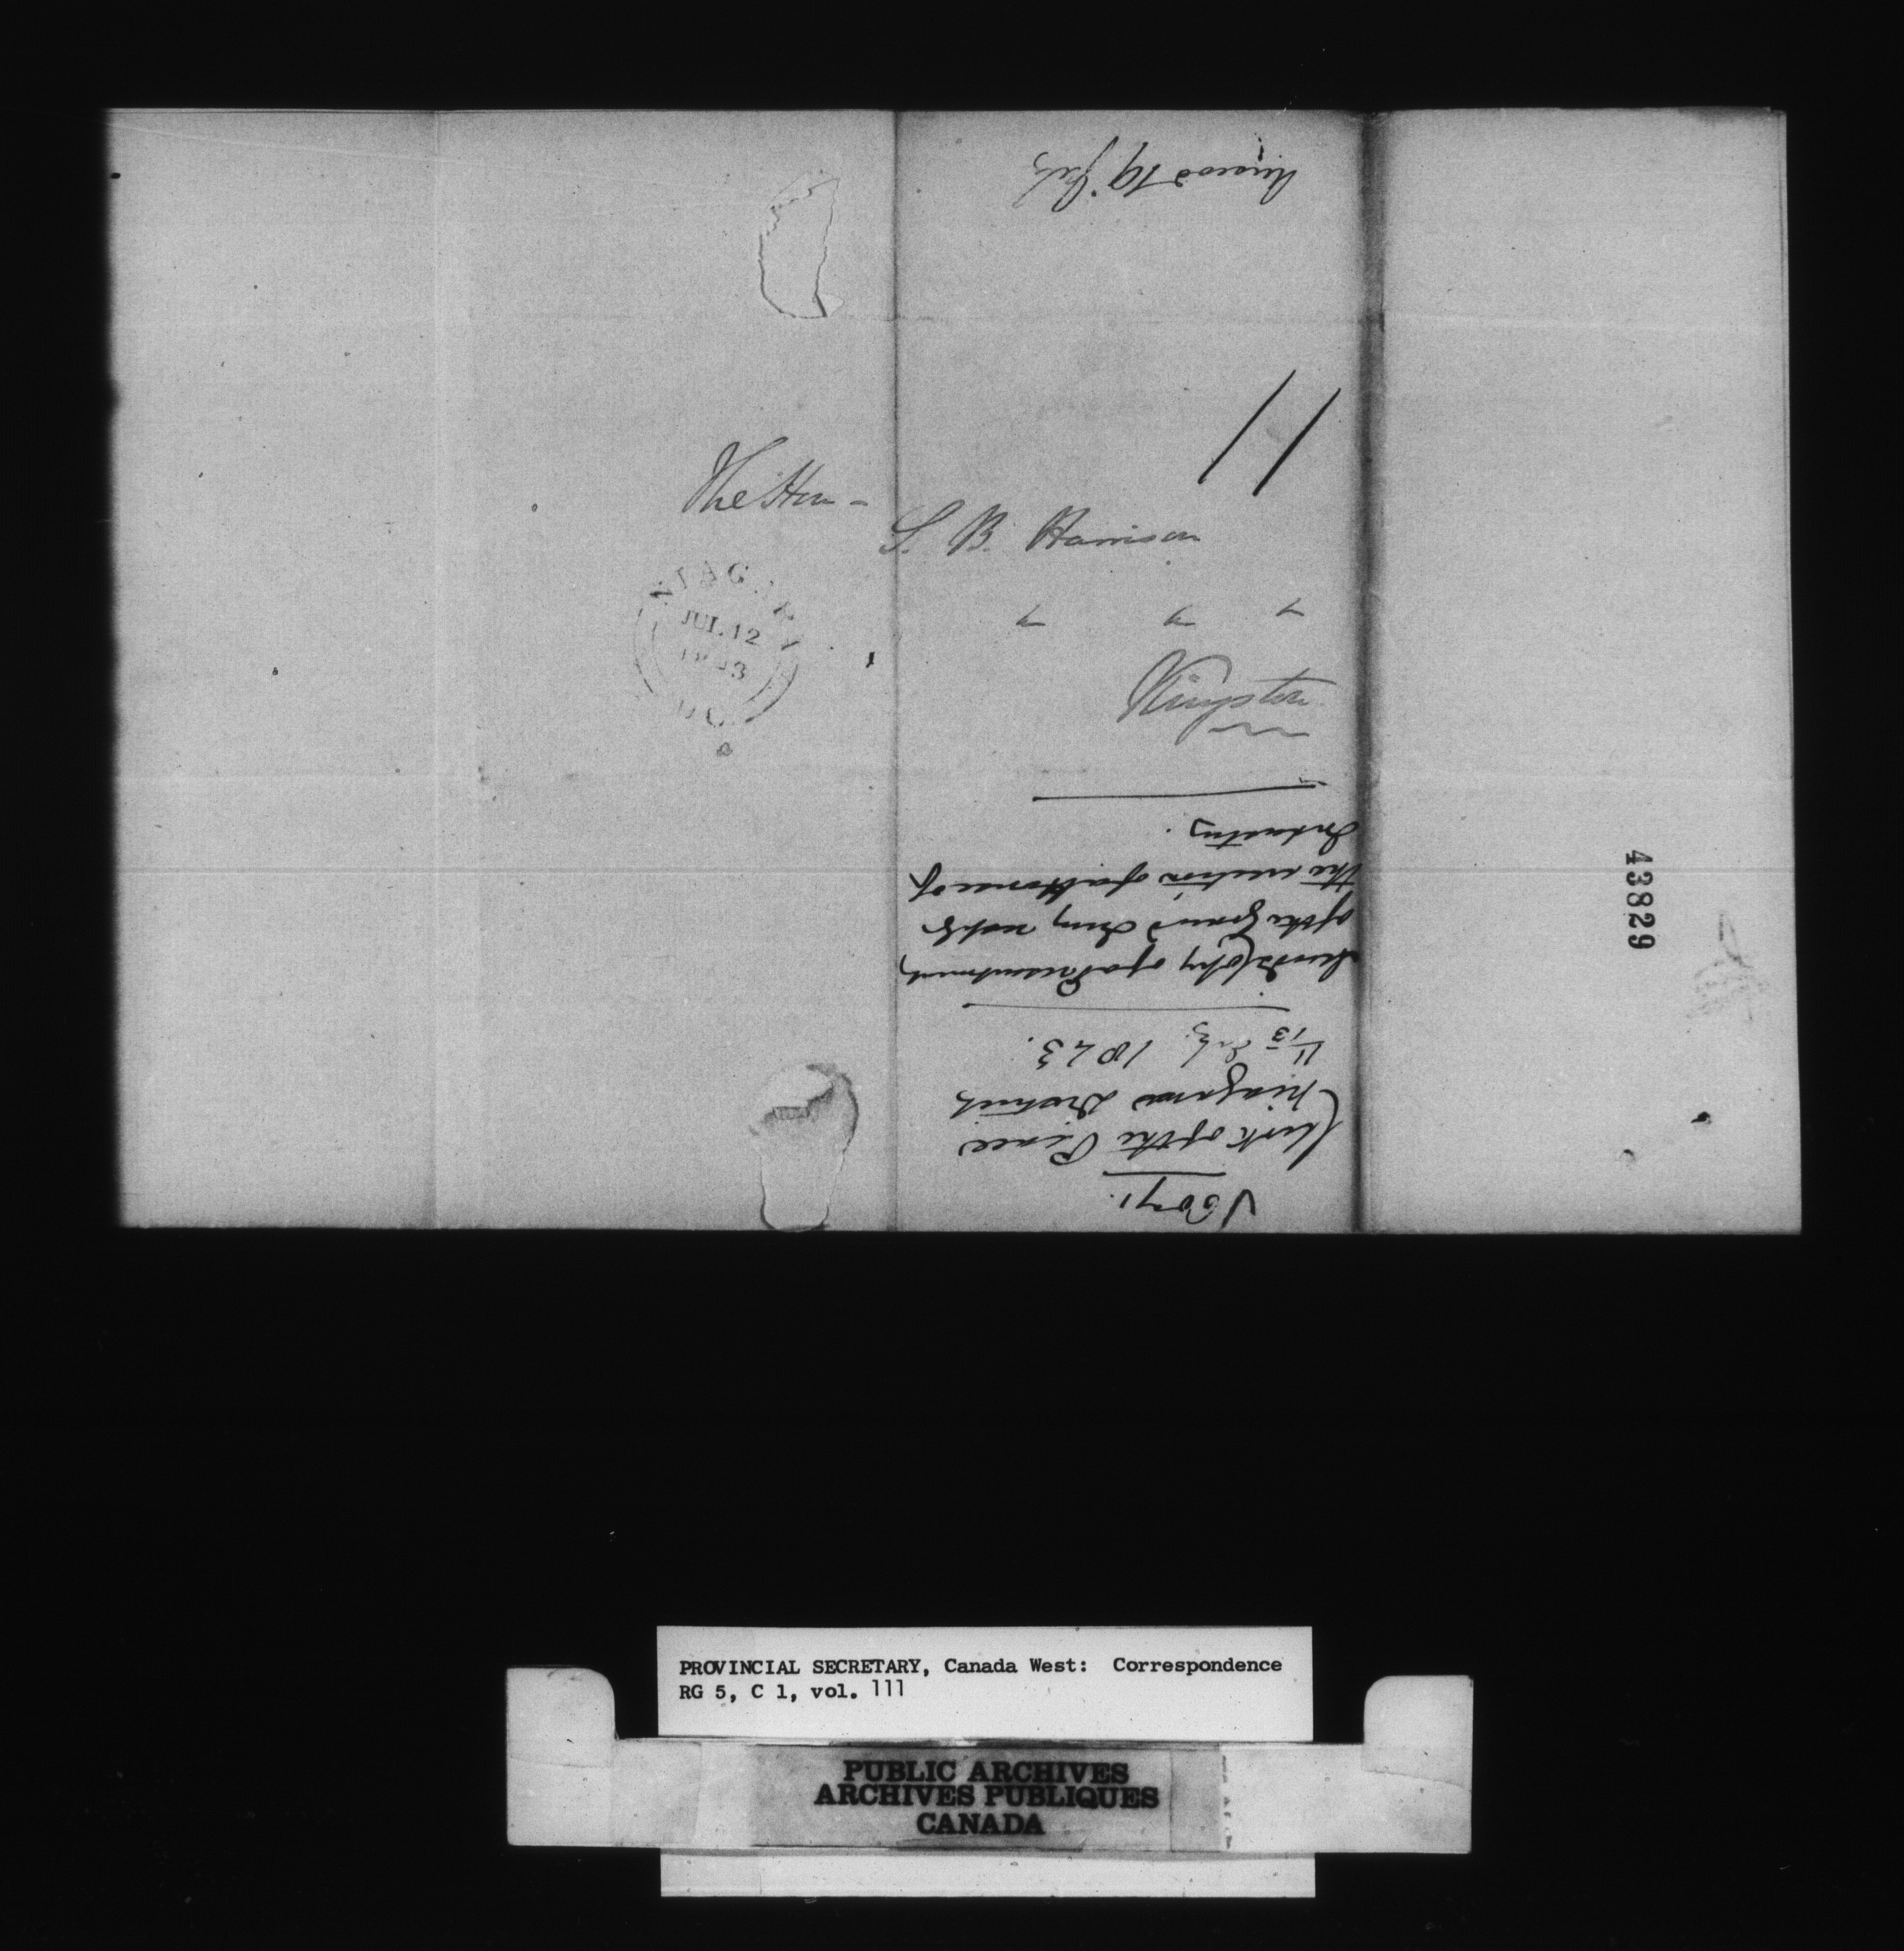 The Hon -
S. B. Harrison
" " "
Kingston
NIAGARA
JUL 12
1843
U.C.
Answd 19 July
11
Clerk of the Peace
Niagara District
July 1843.
Sends Copy of a Presentment
of the Grand Jury
the erection of a House of
Industry.
43829
PROVINCIAL SECRETARY, Canada West: Correspondence
RG 5, C 1, vol. 111
PUBLIC ARCHIVES
ARCHIVES PUBLIQUES
CANADA